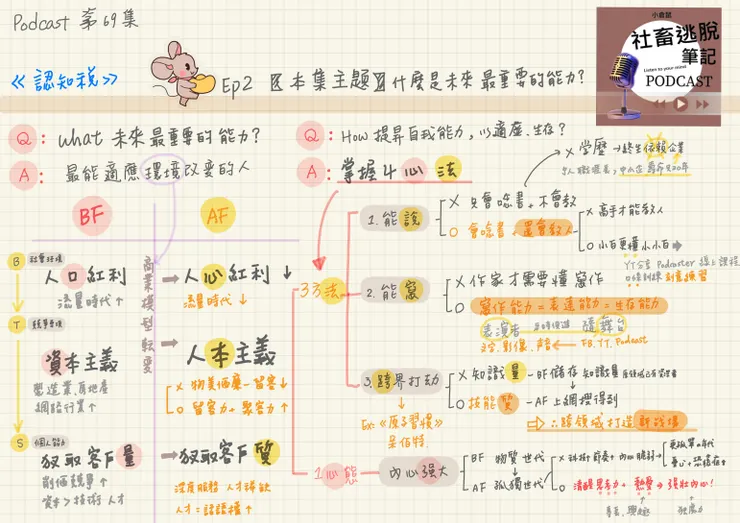 Podcast 第69集
小倉鼠
社畜逃脫
筆記
Listen to your mind
PODCAST
《認知稅》
Ep2 〖本集主題〗什麼是未來最重要的能力?
Q: What 未來最重要的能力?
A: 最能適應環境改變的人
BF
AF
商業模型轉變
B 社會環境
人口紅利
流量時代↑
人心紅利↓
流量時代↓
T 競爭環境
資本主義
製造業、房地產
網路行業↑
人本主義
X 物美價廉-留客↓
O 留客力+聚客力↑
S 個人能力
致取客戶量
削價競爭↑
資本>技術人才
致取客戶質
深度服務 人才稀缺
人才=話語權↑
Q: How 提昇自我能力,以適應.生存?
A: 掌握4心法
3方法
1.能說
X 只會唸書,不會教
O 會唸書,還會教人
X 學歷→終生依賴企業
X 高手才能教人
O 小白更懂小小白
YT分享 Podcaster 線上課程
刻意練習
2.能寫
X 作家才需要懂寫作
O 寫作能力=表達能力=生存能力
表演者
舞台
文字.影像.聲音←FB.YT.Podcast
3.跨界打劫
Ex:《原子習慣》
呆伯特.
X 知識量-BF儲存知識量
O 技能質-AF上網搜得到
⇨∴跨領域打造新戰場
1心態
內心強大
BF 物質世代
AF 孤獨世代
X 科技節奏↑內心脆弱
O 清醒思考力+熱愛→強壯內心!
專長、興趣